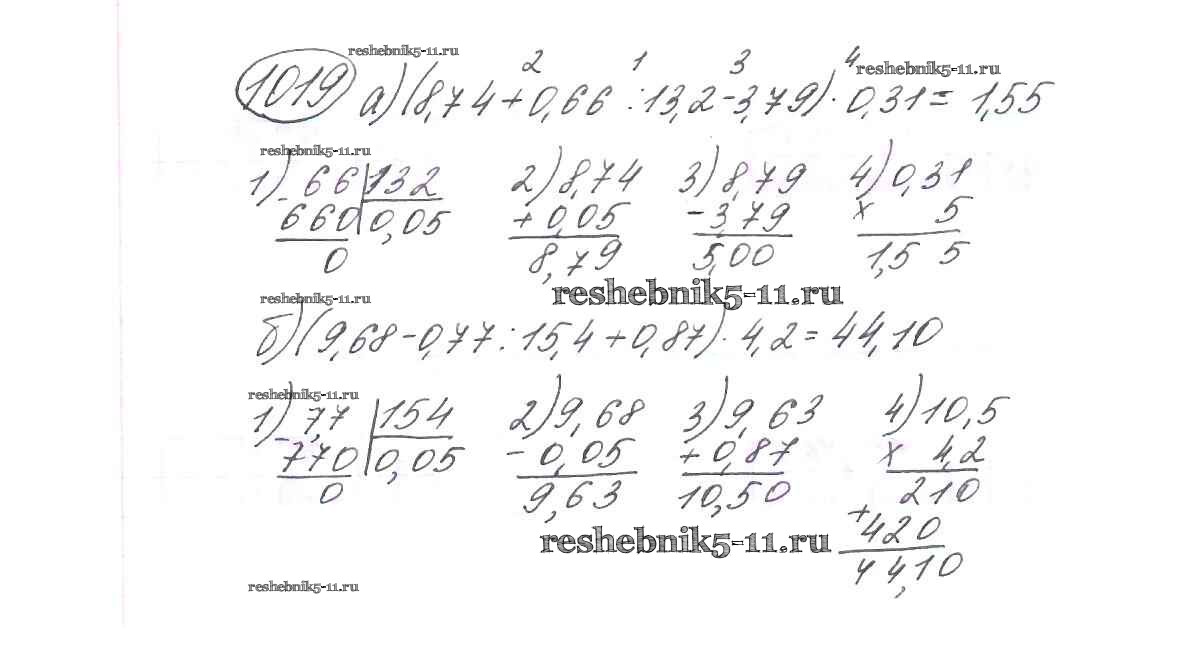 reshebnik5-11.ru
2 1 3 4
reshebnik5-11.ru
1019 а) (8,74 + 0,66 : 13,2 - 3,79) · 0,31 = 1,55
reshebnik5-11.ru
1) - 66 | 132 2) 8,74 3) 8,79 4) 0,31
660 | 0,05 + 0,05 - 3,79 x 5
0 8,79 5,00 1,5 5
reshebnik5-11.ru reshebnik5-11.ru
б) (9,68 - 0,77 : 15,4 + 0,87) · 4,2 = 44,10
reshebnik5-11.ru
1) - 7,7 | 154 2) 9,68 3) 9,63 4) 10,5
770 | 0,05 - 0,05 + 0,87 x 4,2
0 9,63 10,50 210
reshebnik5-11.ru + 420
reshebnik5-11.ru 44,10